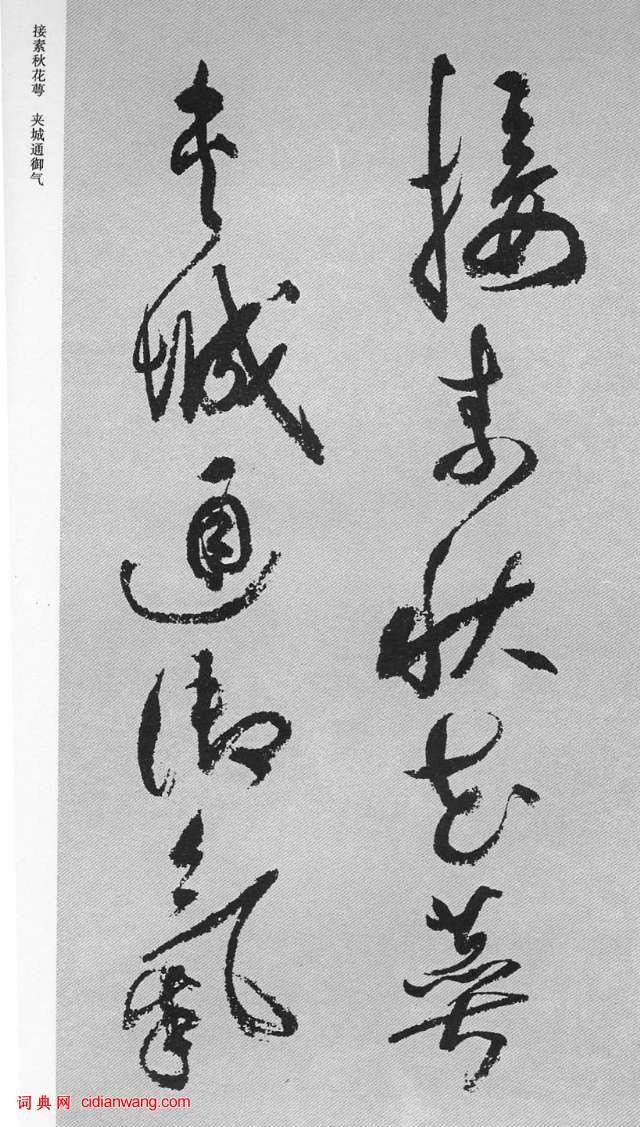 接素秋花萼
夹城通御气
接素秋花萼 夹城通御气
词典网 cidianwang.com